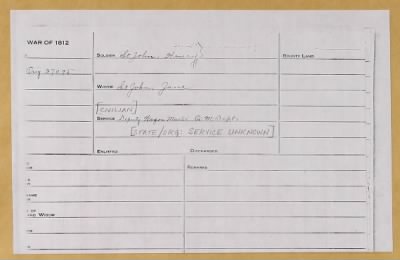 WAR OF 1812
SOLDIER St John, Henry
BOUNTY LAND
WIDOW St John, Jane
[CIVILIAN]
SERVICE Deputy Wagon Master Q. M. Dept.
[STATE/ORG: SERVICE UNKNOWN]
ENLISTED
DISCHARGED
REMARKS